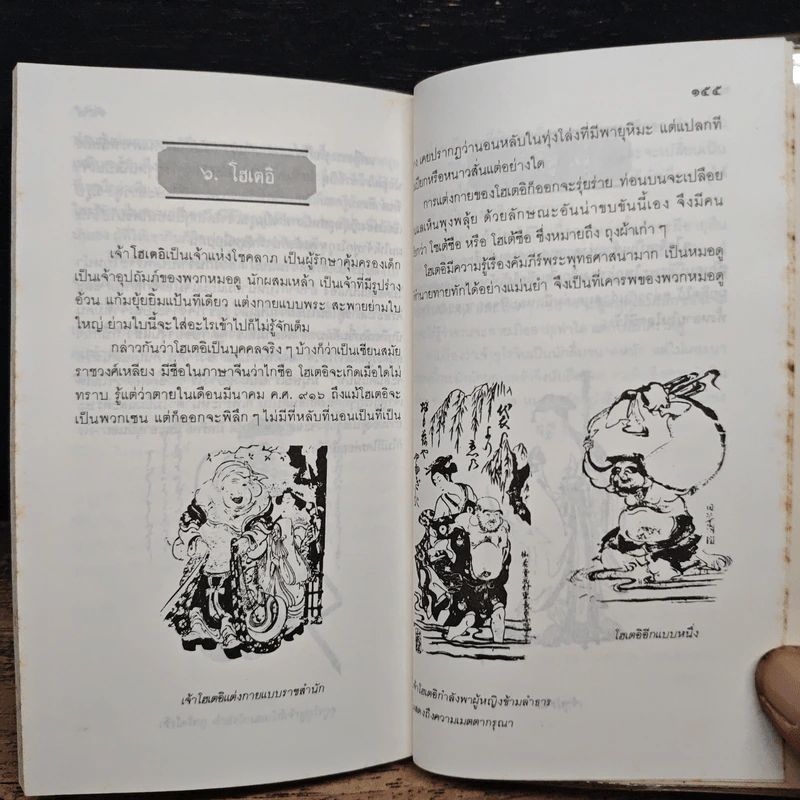 ๖. โฮเตอิ
เจ้าโฮเตอิเป็นเจ้าแห่งโชคลาภ เป็นผู้รักษาคุ้มครองเด็ก
เป็นเจ้าอุปถัมภ์ของพวกหมอดู นักผสมเหล้า เป็นเจ้าที่มีรูปร่าง
อ้วน แก้มยุ้ยยิ้มแป้นทีเดียว แต่งกายแบบพระ สะพายย่ามใบ
ใหญ่ ย่ามใบนี้จะใส่อะไรเข้าไปก็ไม่รู้จักเต็ม
กล่าวกันว่าโฮเตอิเป็นบุคคลจริง ๆ บ้างก็ว่าเป็นเซียนสมัย
ราชวงศ์เหลียง มีชื่อในภาษาจีนว่าไกซือ โฮเตอิจะเกิดเมื่อใดไม่
ทราบ รู้แต่ว่าตายในเดือนมีนาคม ค.ศ. ๙๑๖ ถึงแม้โฮเตอิจะ
เป็นพวกเซน แต่ก็ออกจะพิลึก ๆ ไม่มีที่หลับที่นอนเป็นที่เป็น
เจ้าโฮเตอิแต่งกายแบบราชสำนัก
๑๕๕
เคยปรากฏว่านอนหลับในทุ่งโล่งที่มีพายุหิมะ แต่แปลกที
เปียกหรือหนาวสั่นแต่อย่างใด
การแต่งกายของโฮเตอิก็ออกจะรุ่ยร่าย ท่อนบนจะเปลือย
แลเห็นพุงพลุ้ย ด้วยลักษณะอันน่าขบขันนี้เอง จึงมีคน
โชเต้ซือ หรือ โฮเต้ซือ ซึ่งหมายถึง ถุงผ้าเก่า ๆ
โฮเตอิมีความรู้เรื่องคัมภีร์พระพุทธศาสนามาก เป็นหมอดู
ทำนายทายทักได้อย่างแม่นยำ จึงเป็นที่เคารพของพวกหมอดู
เจ้าโฮเตอิกำลังพาผู้หญิงข้ามลำธาร
แสดงถึงความเมตตากรุณา
โฮเตอิอีกแบบหนึ่ง